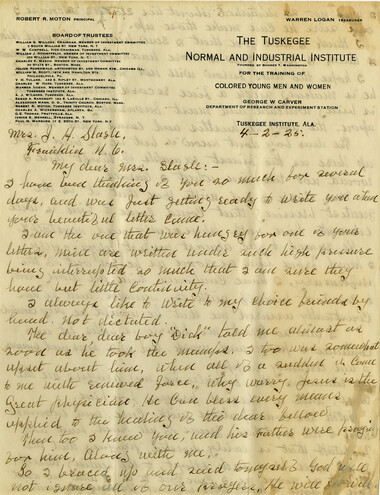 ROBERT R. MOTON PRINCIPAL
WARREN LOGAN TREASURER
BOARD OF TRUSTEES
THE TUSKEGEE
NORMAL AND INDUSTRIAL INSTITUTE
FOUNDED BY BOOKER T. WASHINGTON
FOR THE TRAINING OF
COLORED YOUNG MEN AND WOMEN
GEORGE W CARVER
DEPARTMENT OF RESEARCH AND EXPERIMENT STATION
TUSKEGEE INSTITUTE, ALA.
4-2-25.
Mrs. J. A.
Franklin N. C.
My dear Mrs.
I have been thinking of you so much for several
days, and was just getting ready to write you when
your beautiful letter came.
I am the one that was hungry for one of your
letters, mine are written under such high pressure
being interrupted so much that I am sure they
have but little continuity.
I always like to write to my choice friends by
hand. Not dictated.
The dear, dear boy "Dick" told me almost as
soon as he took the mumps. I too was somewhat
upset about him, when all of a sudden it came
to me with renewed force, why worry. Jesus is the
Great physician. He can bless every means
applied to the healing of the dear fellow.
Then too I knew you, and his Father were praying
for him, along with me.
So I braced up and said to myself God will
not ignore all of our prayers, He will